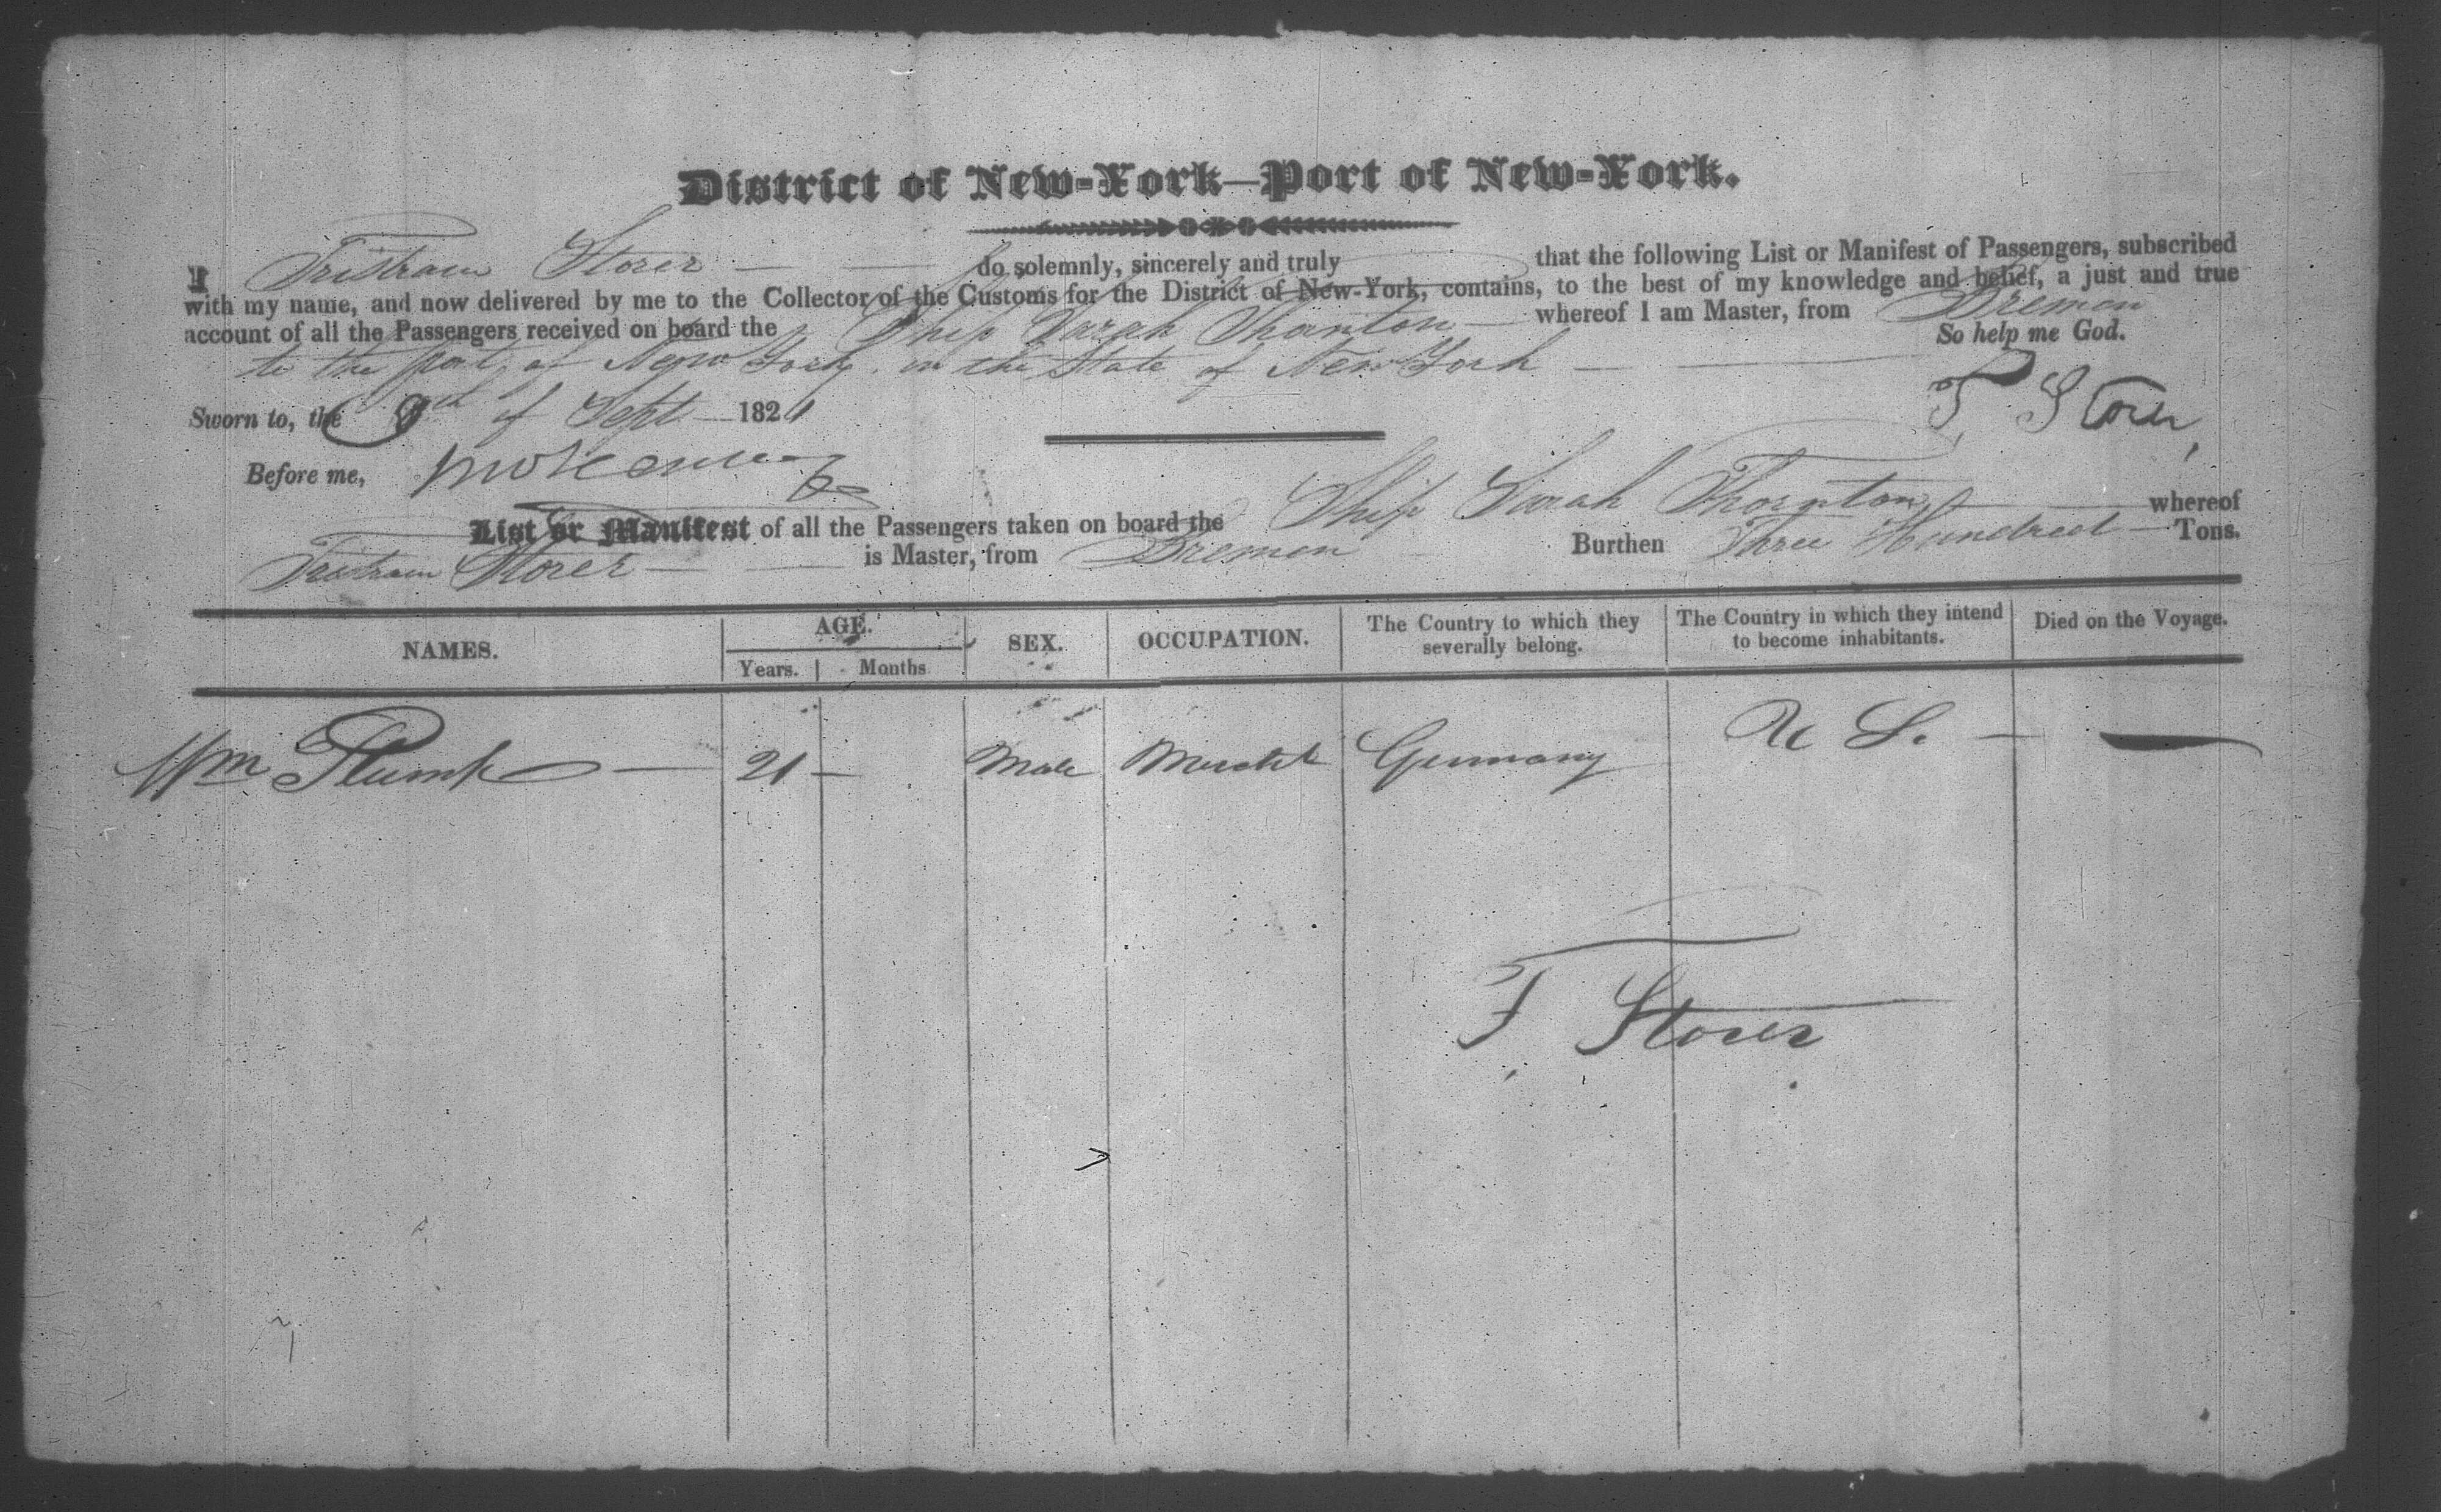 District of New-York—Port of New-York.
I Tristram Storer — do solemnly, sincerely and truly that the following List or Manifest of Passengers, subscribed
with my name, and now delivered by me to the Collector of the Customs for the District of New-York, contains, to the best of my knowledge and belief, a just and true
account of all the Passengers received on board the Ship Sarah Thornton — whereof I am Master, from Bremen
to the port of New York in the State of New York — So help me God.
T. Storer
Sworn to, the of Sept 1821
Before me,
List or Manifest of all the Passengers taken on board the Ship Sarah Thornton whereof
Tristram Storer — is Master, from Bremen Burthen Three Hundred — Tons.
NAMES. AGE. SEX. OCCUPATION. The Country to which they severally belong. The Country in which they intend to become inhabitants. Died on the Voyage.
Years. Months
Wm Plump — 21 — Male Mercht Germany U S. — —
T Storer